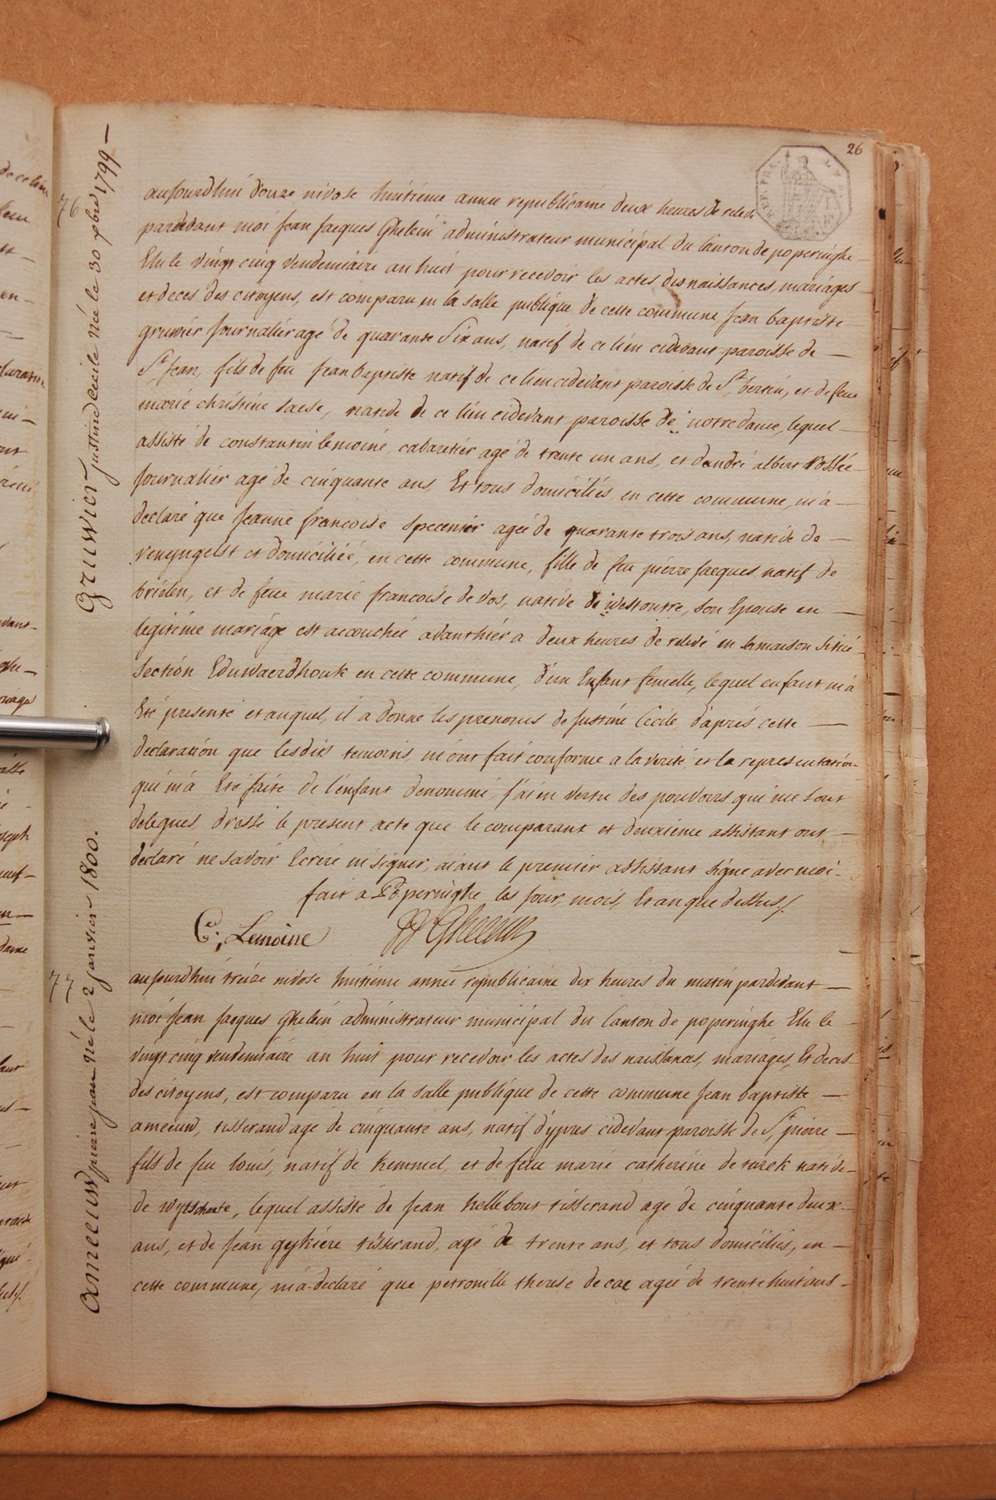 26
76
Gruwier justine Cecile née le 30 xbre 1799 —
aujourdhui douze nivose huitieme année republicaine deux heures de relevé
pardevant moi Jean Jacques Ghelein administrateur municipal du Canton de poperinghe
Elu le vingt cinq vendemiaire an huit pour recevoir les actes des naissances, mariages
et deces des citoyens, est comparu en la salle publique de cette commune Jean baptiste
gruwier journalier agé de quarante Six ans, natif de ce lieu cidevant paroisse de —
St Jean, fils de feu Jean baptiste natif de ce lieu cidevant paroisse de St bertin, et de feue
marie christine saese, native de ce lieu cidevant paroisse de notre dame, lequel
assisté de constantin lemoine, cabaretier agé de trente un ans, et d'andré albert
journalier agé de cinquante ans Et tous domiciliés en cette commune, m'a —
declaré que Jeanne francoise Specenier ageé de quarante trois ans, native de —
renyngelst et domiciliée, en cette commune, fille de feu pierre Jacques natif de
brielen, et de feue marie francoise de vos, native de westoutre, son Epouse en —
legitime mariage est accouchée avanthier a deux heures de relevé en sa maison sitúé
Section Eduwaerdhouk en cette commune, d'un Enfant femelle, lequel enfant m'a
Eté presenté et auquel, il a donné les prenoms de Justine Cecile, d'après cette —
declaration que lesdits temoins, m'ont fait conforme a la verité et la representation
qui m'a Eté faite de l'enfant denommé j'ai en vertu des pouvoirs qui me sont
delegués dressé le present acte que le comparant et deuxieme assistant ont —
declaré ne savoir Ecrire ni signer, aiant le premier assistant signé avec moi -
fait a Poperinghe les jour, mois, Et an que dessus /.
C. Lemoine JJ Ghelein
77
Ameeuw pierre jean né le 2 janvier 1800.
aujourdhui treize nivose huitieme année republicaine dix heures du matin pardevant —
moi Jean Jacques Ghelein administrateur municipal du Canton de poperinghe Elu le -
vingt cinq vendemiaire an huit pour recevoir les actes des naissances, mariages, Et deces
des citoyens, est comparu en la salle publique de cette commune Jean baptiste —
ameeuw, tisserand agé de cinquante ans, natif d'ypres cidevant paroisse de St pierre —
fils de feu louis, natif de kemmel, et de feue marie catherine de turck native -
de wytschaete, lequel assisté de Jean hellebout tisserand agé de cinquante deux -
ans, et de Jean tisserand, agé de trente ans, et tous domiciliés, en —
cette commune, m'a declaré que petronille therese de cae ageé de trente huit ans -